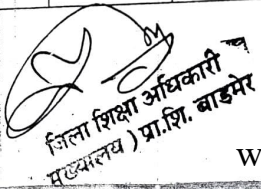 जिला शिक्षा अधिकारी
मुख्यालय ) प्रा.शि. बाड़मेर
W